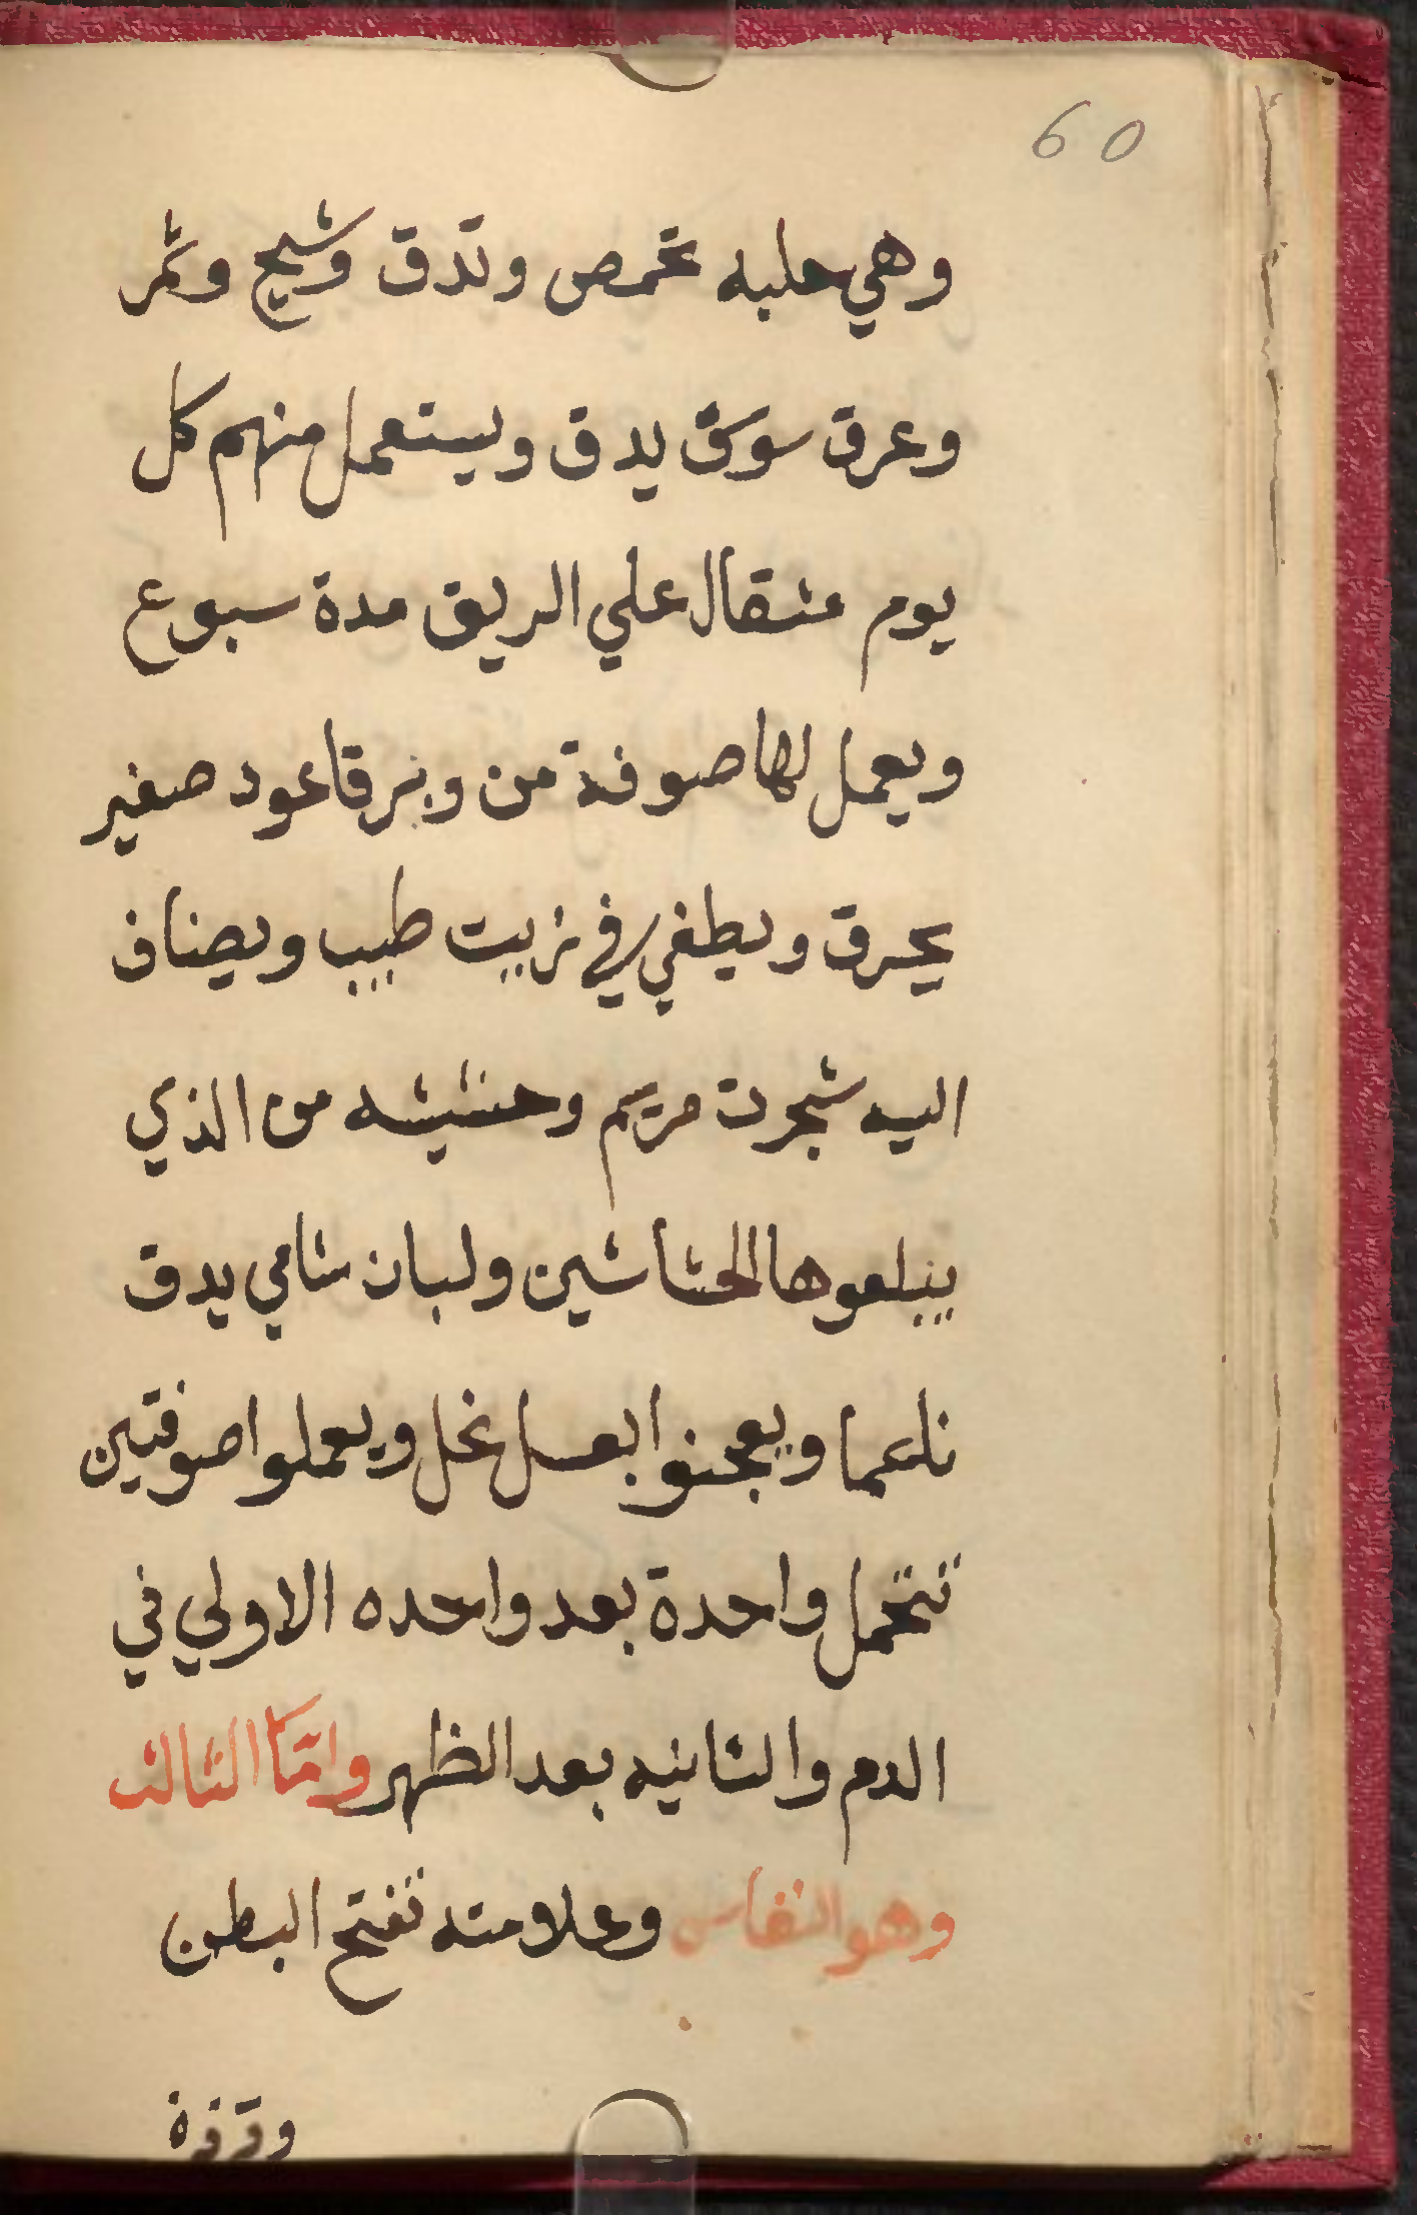 60
وهي حلبه تحمص وتدق وشيح وتمر
وعرق سوس يدق ويستعمل منهم كل
يوم مثقال علي الريق مدة سبوع
ويعمل لها صوفة من وبر قاعود صغير
يحرق ويطفي في زيت طيب ويضاف
اليه شجرت مريم وحشيشه من الذي
يبلعوها الحشاشين ولبان شامي يدق
ناعما ويعجنوا بعسل نحل ويعملوا صوفتين
تتحمل واحدة بعد واحده الاولي في
الدم والثانيه بعد الظهر وامّا الثالث
وهو النفاس وعلامته تفتح البطن